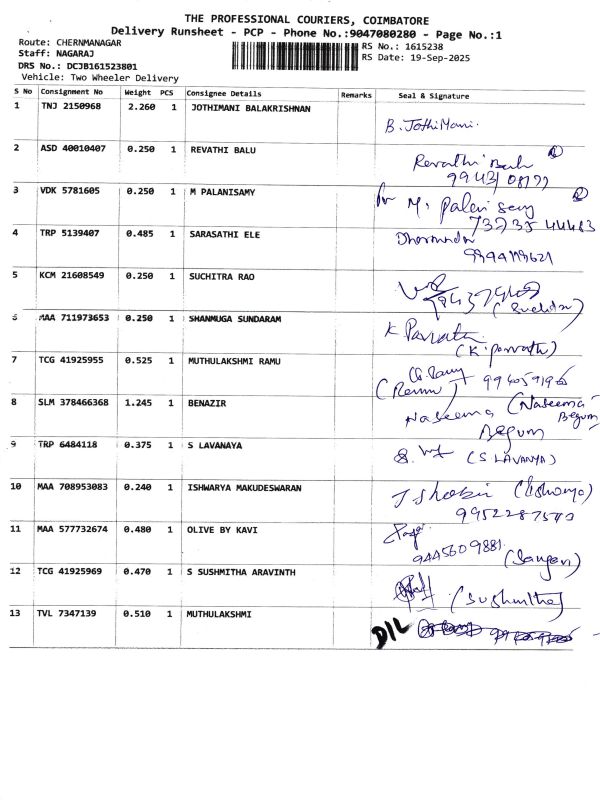 THE PROFESSIONAL COURIERS, COIMBATORE
Delivery Runsheet - PCP - Phone No.:9047080280 - Page No.:1
Route: CHERNMANAGAR
Staff: NAGARAJ
DRS No.: DCJB161523801
Vehicle: Two Wheeler Delivery
RS No.: 1615238
RS Date: 19-Sep-2025
S No Consignment No Weight PCS Consignee Details Remarks Seal & Signature
1 TNJ 2150968 2.260 1 JOTHIMANI BALAKRISHNAN
B. JothiMani.
2 ASD 40010407 0.250 1 REVATHI BALU
Revathi Balu
3 VDK 5781605 0.250 1 M PALANISAMY
M. Palani Samy
4 TRP 5139407 0.485 1 SARASATHI ELE
5 KCM 21608549 0.250 1 SUCHITRA RAO
6 MAA 711973653 0.250 1 SHANMUGA SUNDARAM
K Parvathi
(K. parvathi)
7 TCG 41925955 0.525 1 MUTHULAKSHMI RAMU
(Ramu)
8 SLM 378466368 1.245 1 BENAZIR
Naseema (Naseema Begum)
Begum
9 TRP 6484118 0.375 1 S LAVANAYA
(S LAVANYA)
10 MAA 708953083 0.240 1 ISHWARYA MAKUDESWARAN
11 MAA 577732674 0.480 1 OLIVE BY KAVI
9445609881
12 TCG 41925969 0.470 1 S SUSHMITHA ARAVINTH
(Sushmitha)
13 TVL 7347139 0.510 1 MUTHULAKSHMI
D/L